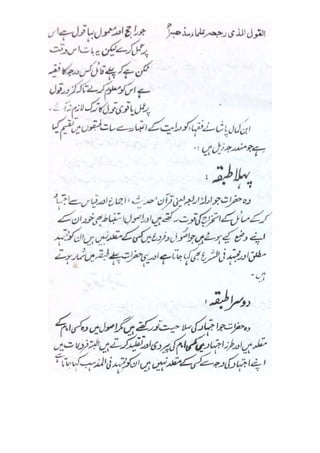 القول الذی رجحہ علماء مذھبہ جو راجح اور معمول بہا قول ہے اس
پر عمل کرے لیکن یہ بات اس وقت
ممکن ہے کہ پہلے قائل کس درجہ کا فقیہ
اس کو معلوم کرے تاکہ کمزور قول
پر عمل یا قوی قول کا ترک لازم نہ آئے۔
ابن کمال پاشا نے فقہاء کو درایت کے اعتبار سے سات طبقوں میں تقسیم کیا
ہے جو مندرجہ ذیل ہیں:
پہلا طبقہ:
وہ حضرات جو ادلہ اربعہ یعنی قرآن، حدیث، اجماع اور قیاس سے اجتہاد
کر کے مسائل کے استخراج کی قوت رکھتے ہیں اور اصول استنباط بھی خود ان کے
اپنے وضع کیے ہوئے ہیں جو اصول و فروع میں کسی کے مقلد نہیں ہیں ان کو مجتہد
مطلق اور مجتہد فی الشرع بھی کہا جاتا ہے اور یہی حضرات پہلے طبقہ میں شمار ہوتے
ہیں۔
دوسرا طبقہ:
وہ حضرات جو اجتہاد کی صلاحیت تو رکھتے ہیں مگر اصول میں وہ کسی امام کے
مقلد ہیں اور طرز اجتہاد میں کسی امام کی پیروی اور تقلید کرتے ہیں البتہ فروعات میں
اپنے اجتہاد کی وجہ سے کسی کے مقلد نہیں ہیں ان کو مجتہد فی المذہب کہا جاتا ہے